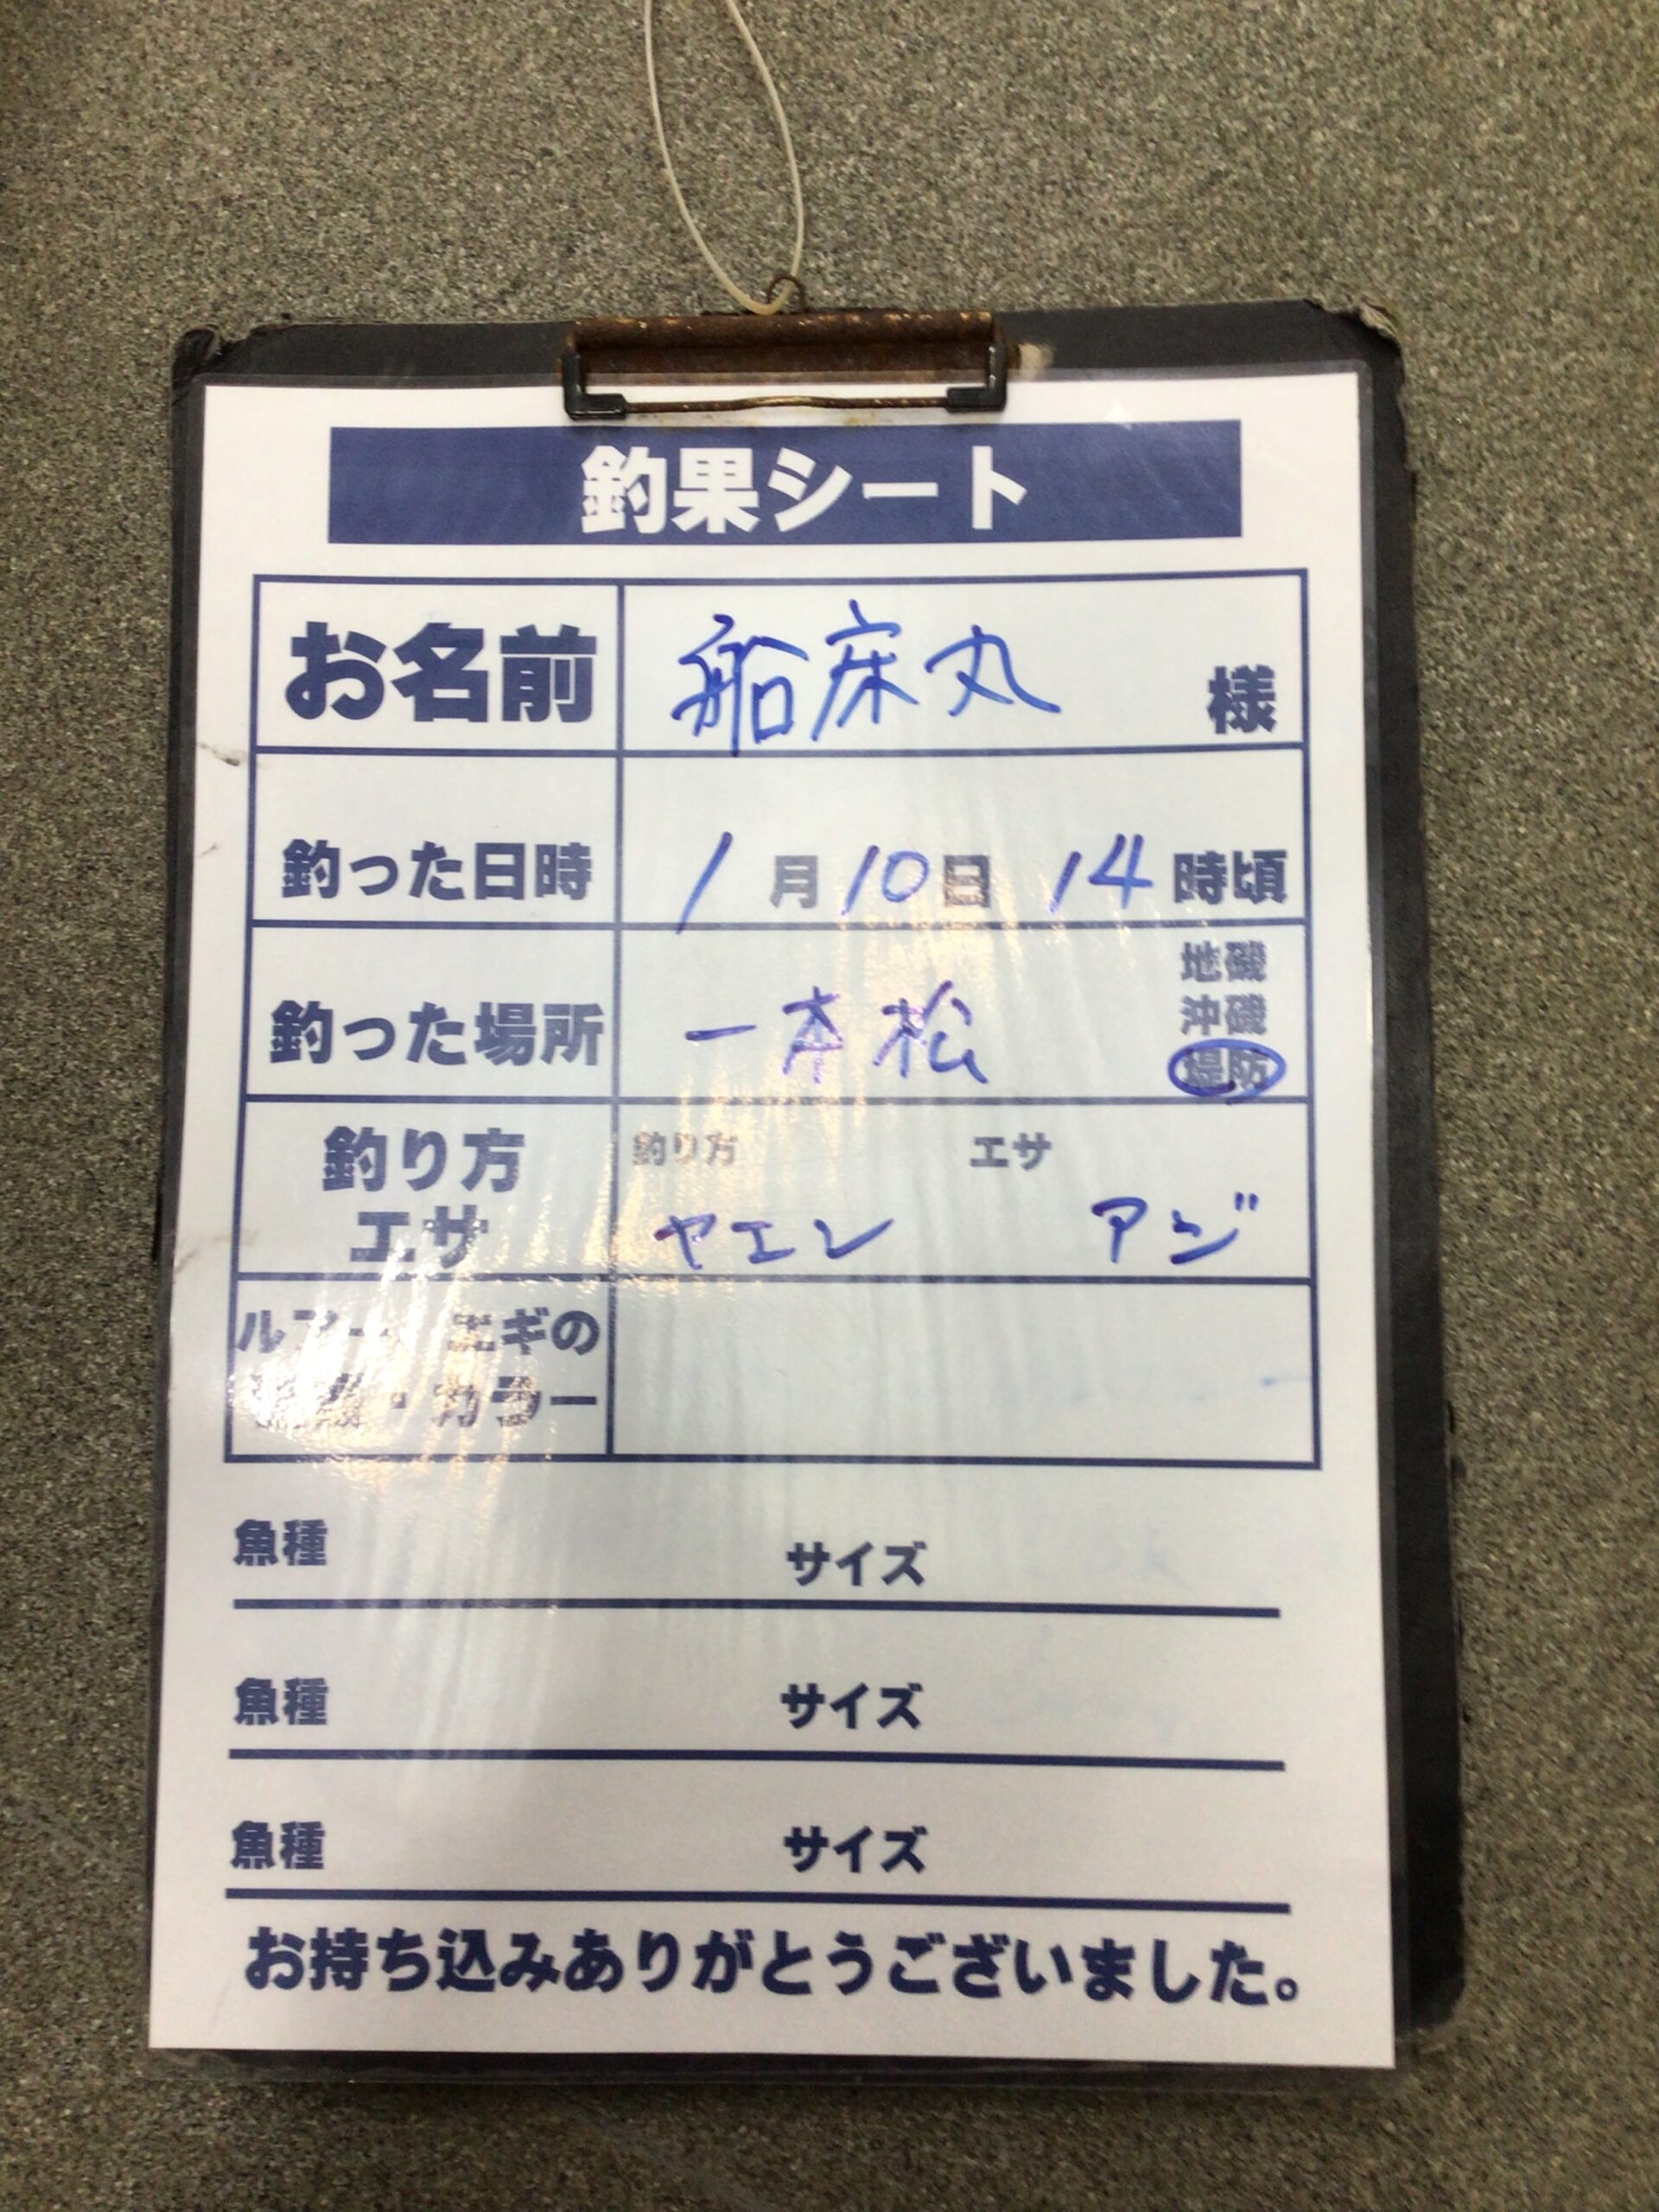 釣果シート
お名前 船床丸 様
釣った日時 1月10日 14時頃
釣った場所 一本松 地磯
沖磯
堤防
釣り方 釣り方 エサ
エサ ヤエン アジ
ルアー エギの
・カラー
魚種 サイズ
魚種 サイズ
魚種 サイズ
お持ち込みありがとうございました。